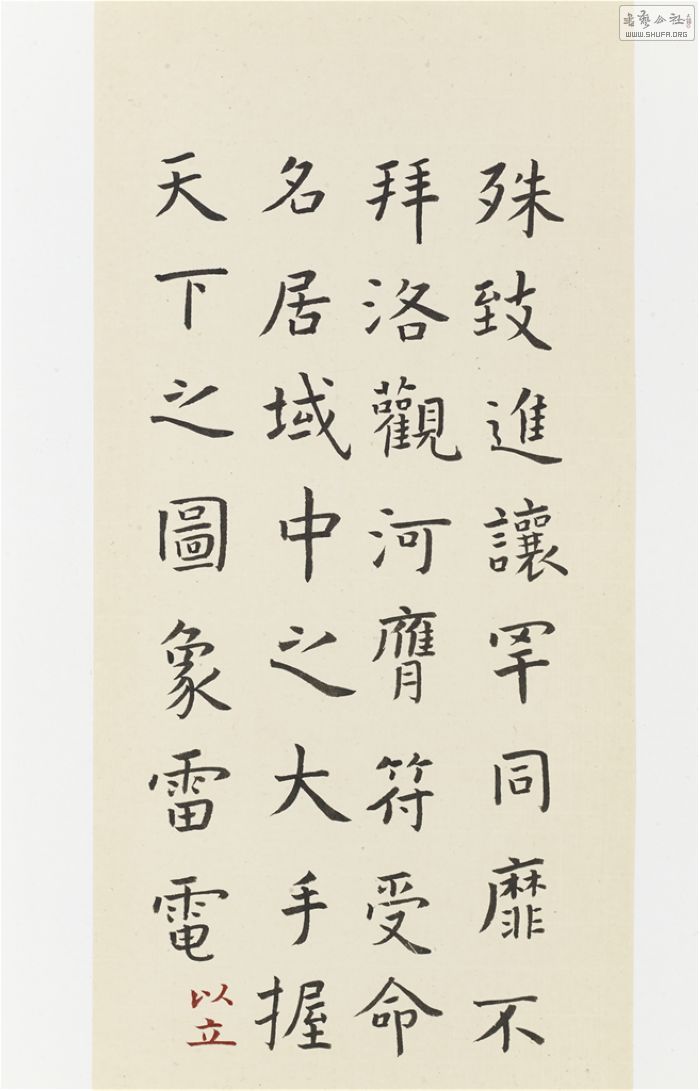 殊致進讓罕同靡不
拜洛觀河膺符受命
名居域中之大手握
天下之圖象雷電
以立
書藝公社
WWW.SHUFA.ORG